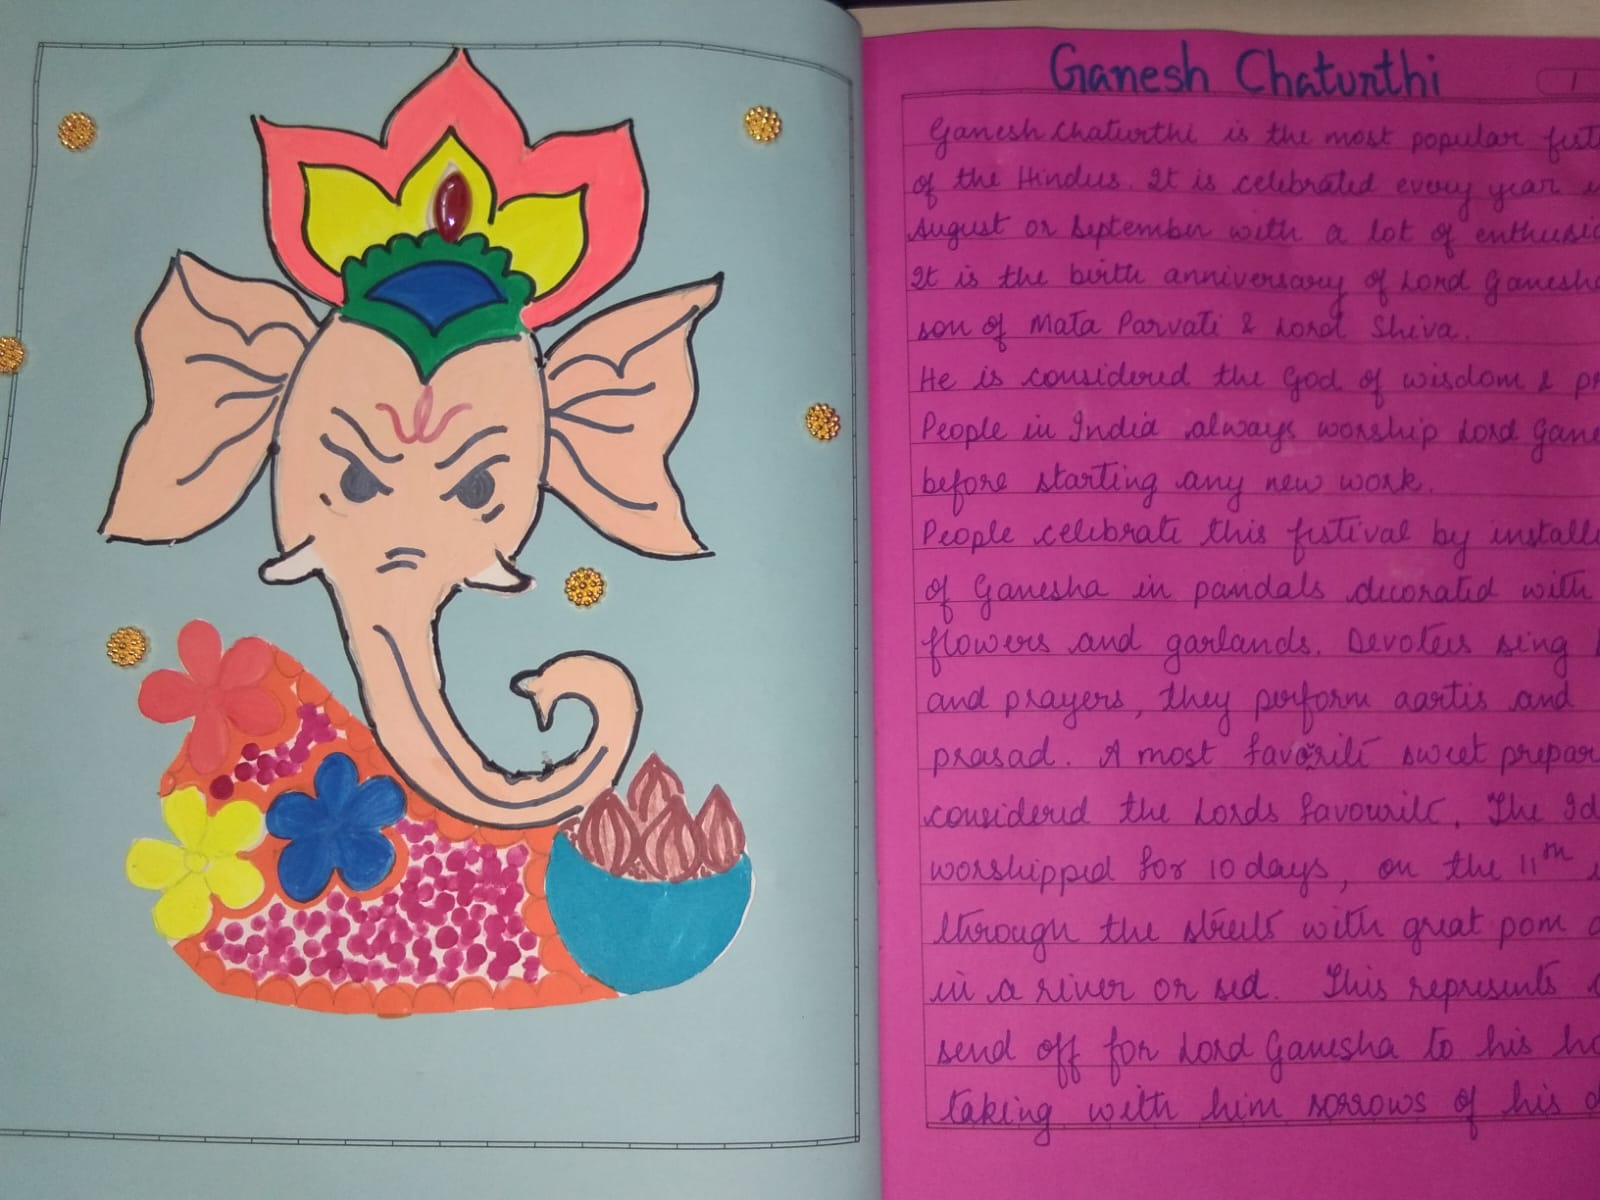 Ganesh Chaturthi
1
Ganesh chaturthi is the most popular
of the Hindus. It is celebrated every year
August or September with a lot of
It is the birth anniversary of Lord Ganesha
son of Mata Parvati & Lord Shiva.
He is considered the God of wisdom &
People in India always worship Lord
before starting any new work.
People celebrate this festival by
of Ganesha in pandals decorated with
flowers and garlands. Devotees sing
and prayers, they perform aartis and
prasad. A most favorite sweet
considered the Lords favourite. The
worshipped for 10 days, on the 11th
through the streets with great pom
in a river or sea. This represents
send off for Lord Ganesha to his
taking with him sorrows of his